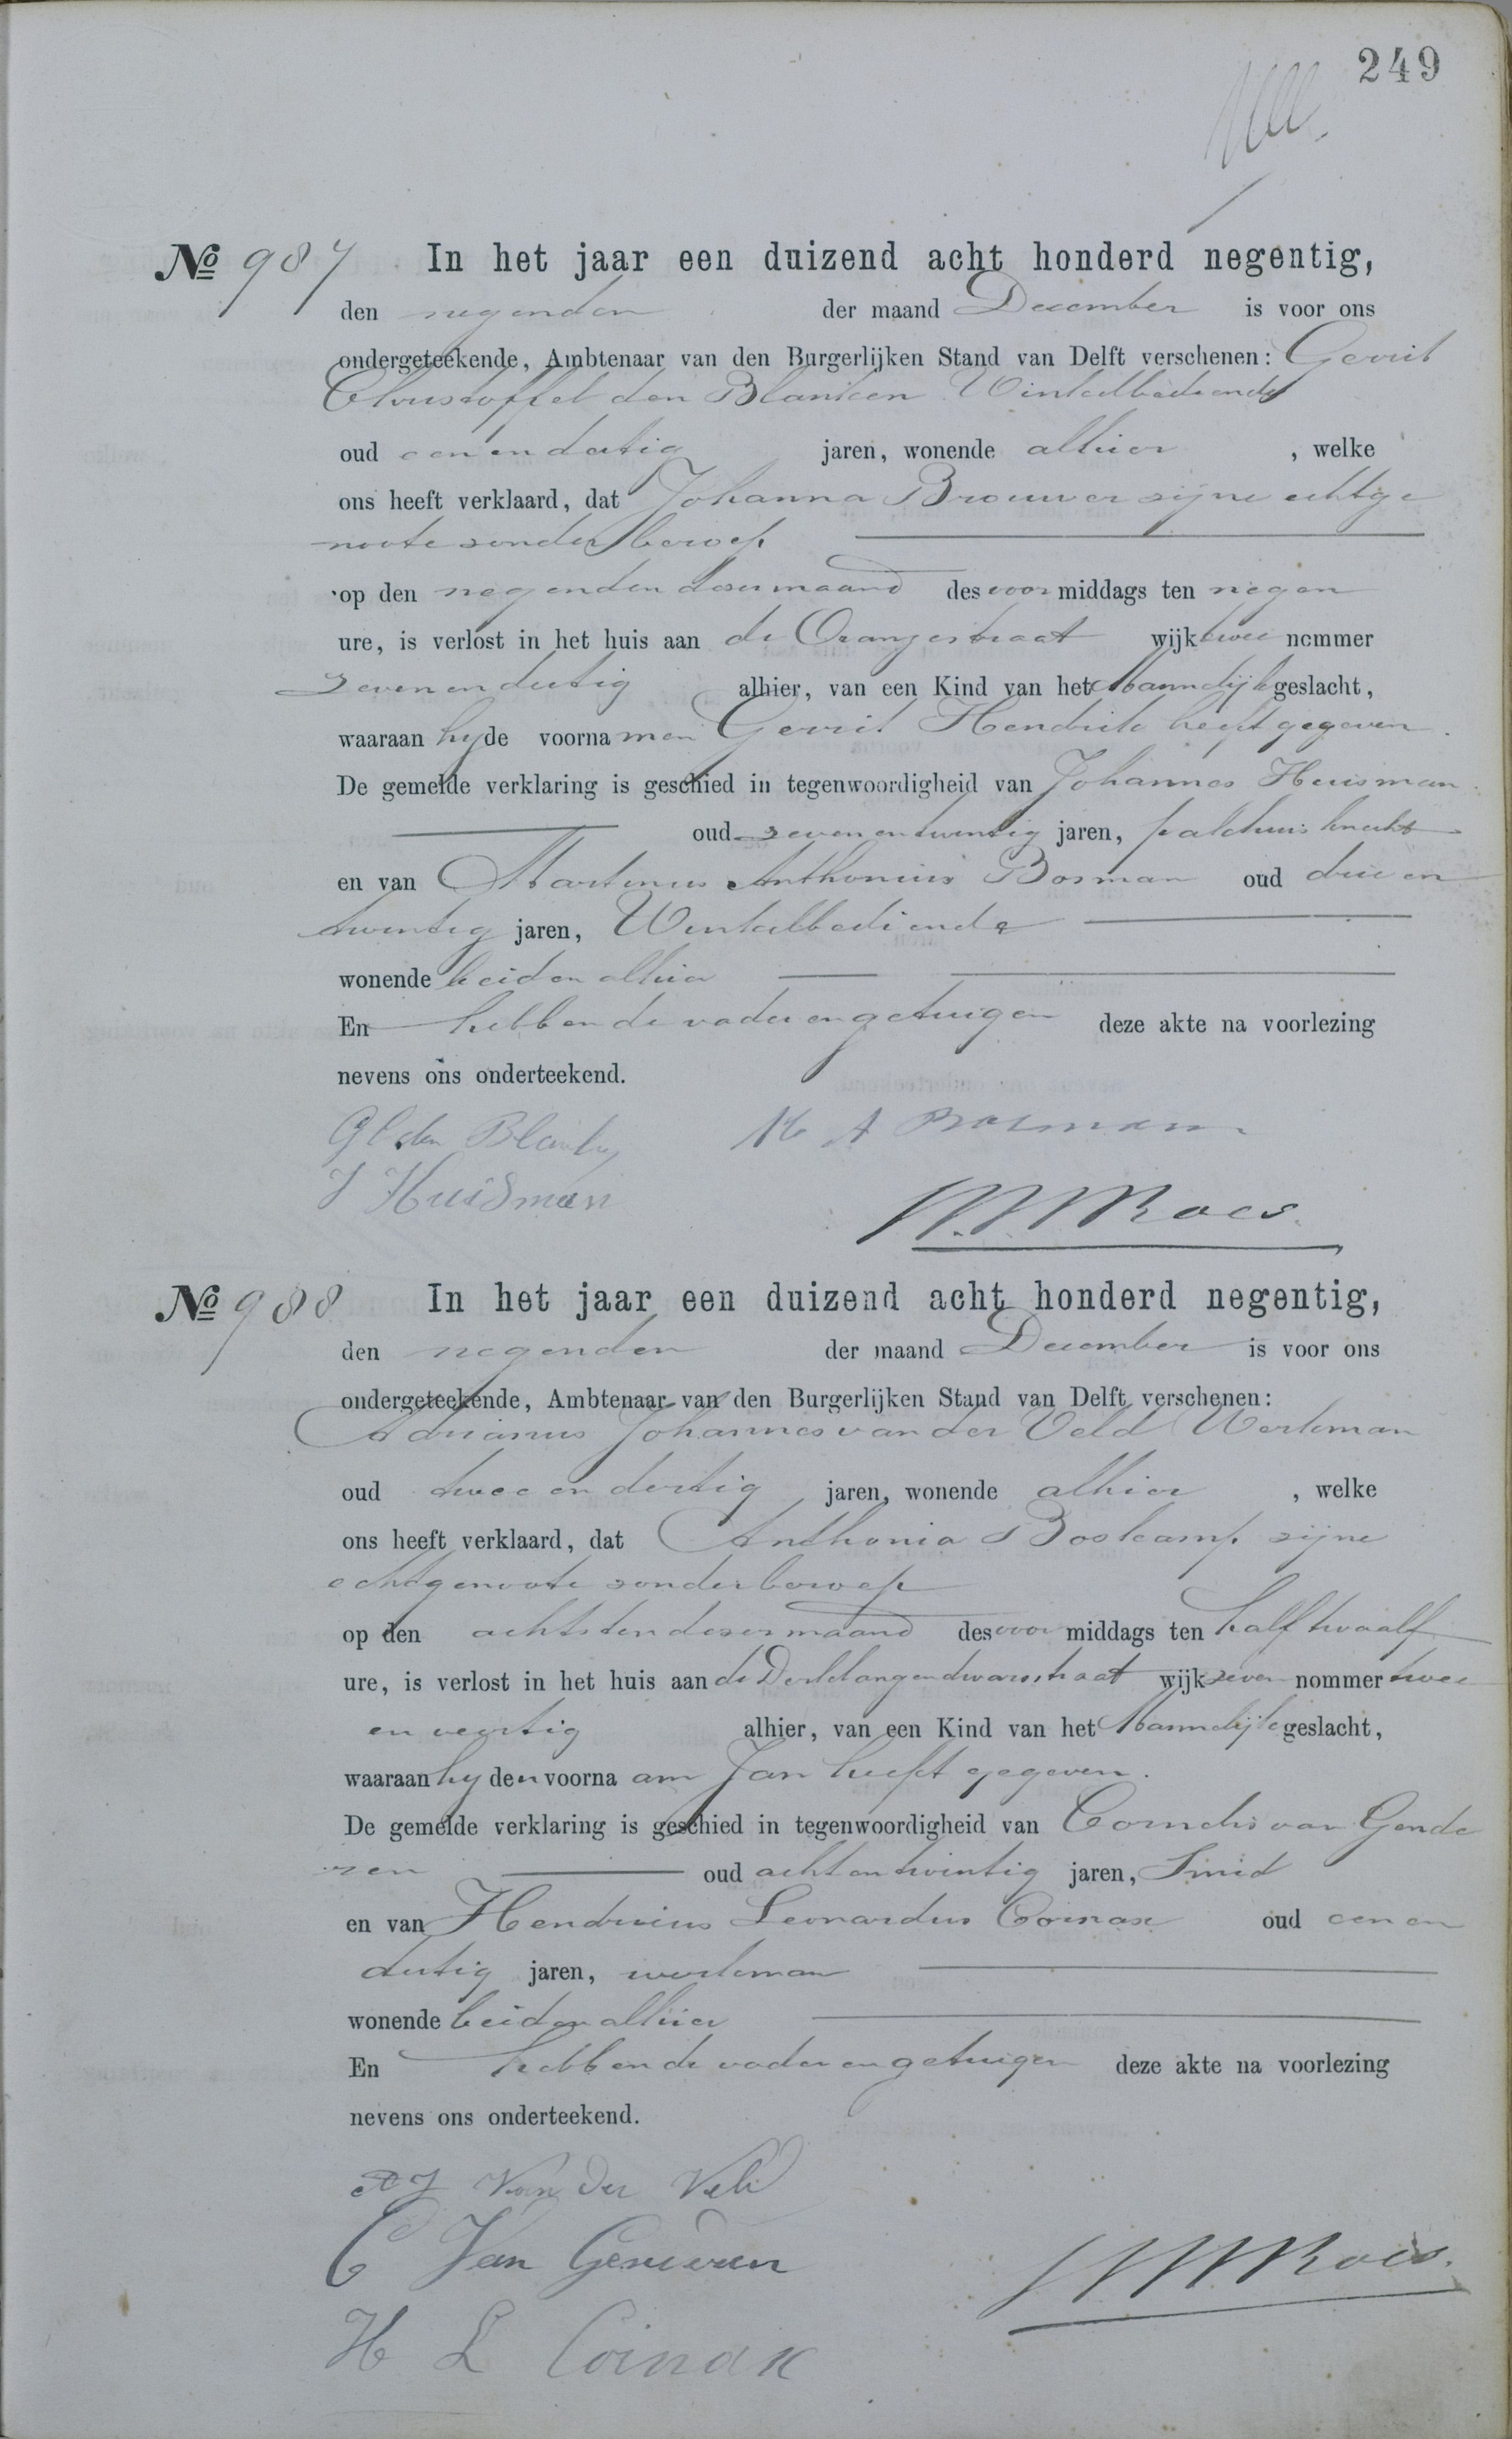 249
No 987 In het jaar een duizend acht honderd negentig,
den negenden der maand December is voor ons
ondergeteekende, Ambtenaar van den Burgerlijken Stand van Delft verschenen: Gerrit
Christoffel den Blanken Winkelbediende
oud een en dertig jaren, wonende alhier , welke
ons heeft verklaard, dat Johanna Brouwer zijne echtge
noote zonder beroep
op den negenden dezer maand des voor middags ten negen
ure, is verlost in het huis aan de Oranjestraat wijk twee nommer
zevenendertig alhier, van een Kind van het Mannelijk geslacht,
waaraan hy de voorna men Gerrit Hendrik heeft gegeven.
De gemelde verklaring is geschied in tegenwoordigheid van Johannes Huisman
oud zevenentwintig jaren, pakhuisknecht
en van Martinus Anthonius Bosman oud drie en
twintig jaren, Winkelbediende
wonende beiden alhier
En hebben de vader en getuigen deze akte na voorlezing
nevens ons onderteekend.
GC den Blanken M A Bosman
J Huisman
Roes.
No 988 In het jaar een duizend acht honderd negentig,
den negenden der maand December is voor ons
ondergeteekende, Ambtenaar van den Burgerlijken Stand van Delft verschenen:
Adrianus Johannes van der Veld Werkman
oud twee en dertig jaren, wonende alhier , welke
ons heeft verklaard, dat Anthonia Boskamp zijne
echtgenoote zonder beroep
op den achtsten dezer maand des voor middags ten half twaalf
ure, is verlost in het huis aan de wijk zeven nommer twee
en veertig alhier, van een Kind van het Mannelijk geslacht,
waaraan hy den voorna am Jan heeft gegeven.
De gemelde verklaring is geschied in tegenwoordigheid van Cornelis van Gende
ren oud acht en twintig jaren, Smid
en van Hendricus Leonardus Coinax oud een en
dertig jaren, werkman
wonende beiden alhier
En hebben de vader en getuigen deze akte na voorlezing
nevens ons onderteekend.
A J Van der Veld
C Van Genderen
Roes.
H L Coinax